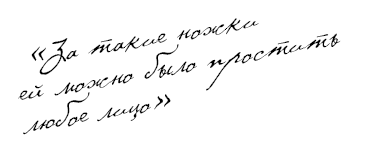 «За такие ножки
ей можно было простить
любое лицо»